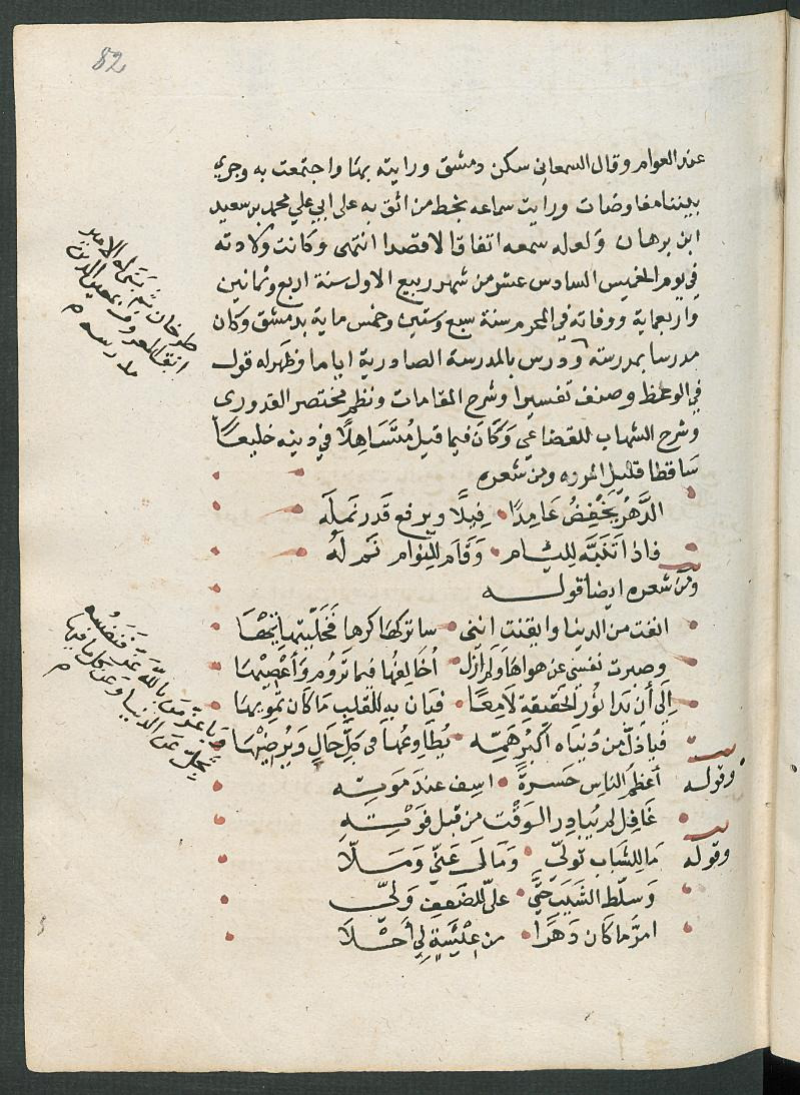 82
عند العوام وقال السمعاني سكن دمشق ورايته بها واجتمعت به وجري
بيننا مفاوضات ورايت سماعه بخط من اثق به على ابي علي محمد بن سعيد
ابن برهان ولعله سمعه اتفاقا لا قصدا انتهى وكانت ولادته
في يوم الخميس السادس عشر من شهر ربيع الاول سنة اربع وثمانين
واربعماية ووفاته في المحرم سنة سبع وستين وخمس ماية بدمشق وكان
مدرسا بمدرسة ودرس بالمدرسة الصاورية اياما وظهر له قول
في الوعظ وصنف تفسيرا وشرح المقامات ونظم مختصر القدوري
وشرح الشهاب للقضاعي وَكَانَ فيما قيل مُتَسَاهِلًا في دينه خليعًا
سَاقطا قليل المروه ومن شعره
الدَّهْرُ يَخْفِضُ عَامِدًا فِيلًا ويرفع قَدر نَملَه
فاذا تَنَبَّه لِلِّيَام وَقَام لِلنُّوام نَم لَهُ
ومن شعره ايضا قولــه
انفت من الدنيا وايقنت انني ساتركها كرها فَخَلَّيتها
وصبرت نفسي عن هواهَا وَلم ازل أُخَالِفُها فيما تَرُوم وَأَعْصِيْهَا
إِلَى أَن بَدَا نُوْرُ الحَقِيقةِ لَامِعًا فَبَان بِهِ لِلقَلب مَا كَان
فَيَا ذلّ من دُنياه أَكبَرُ هَمِّه يُطَاوِعُهَا في كلِّ حَالٍ وَيُرْضِيْهَا
وقوله أَعظَمُ الناسِ حَسرةً اسِف عندَ مَوتِه
غَافِل لم يُبَادِر الوَقْت من قبل فَوْتــه
وقوله مَا لِلشَبَاب تولّى وَمَا لَى عَنّي وَمَلَّا
وَسلّط الشَيب حتَّى علىَّ للضَعف وَلّى
امرّ مَا كَان دَهرًا من عِيْشَةٍ لِي أَحْلَا
طرخان ثم بنى له الامير
انر الملقب معين الدين
مدرسه م